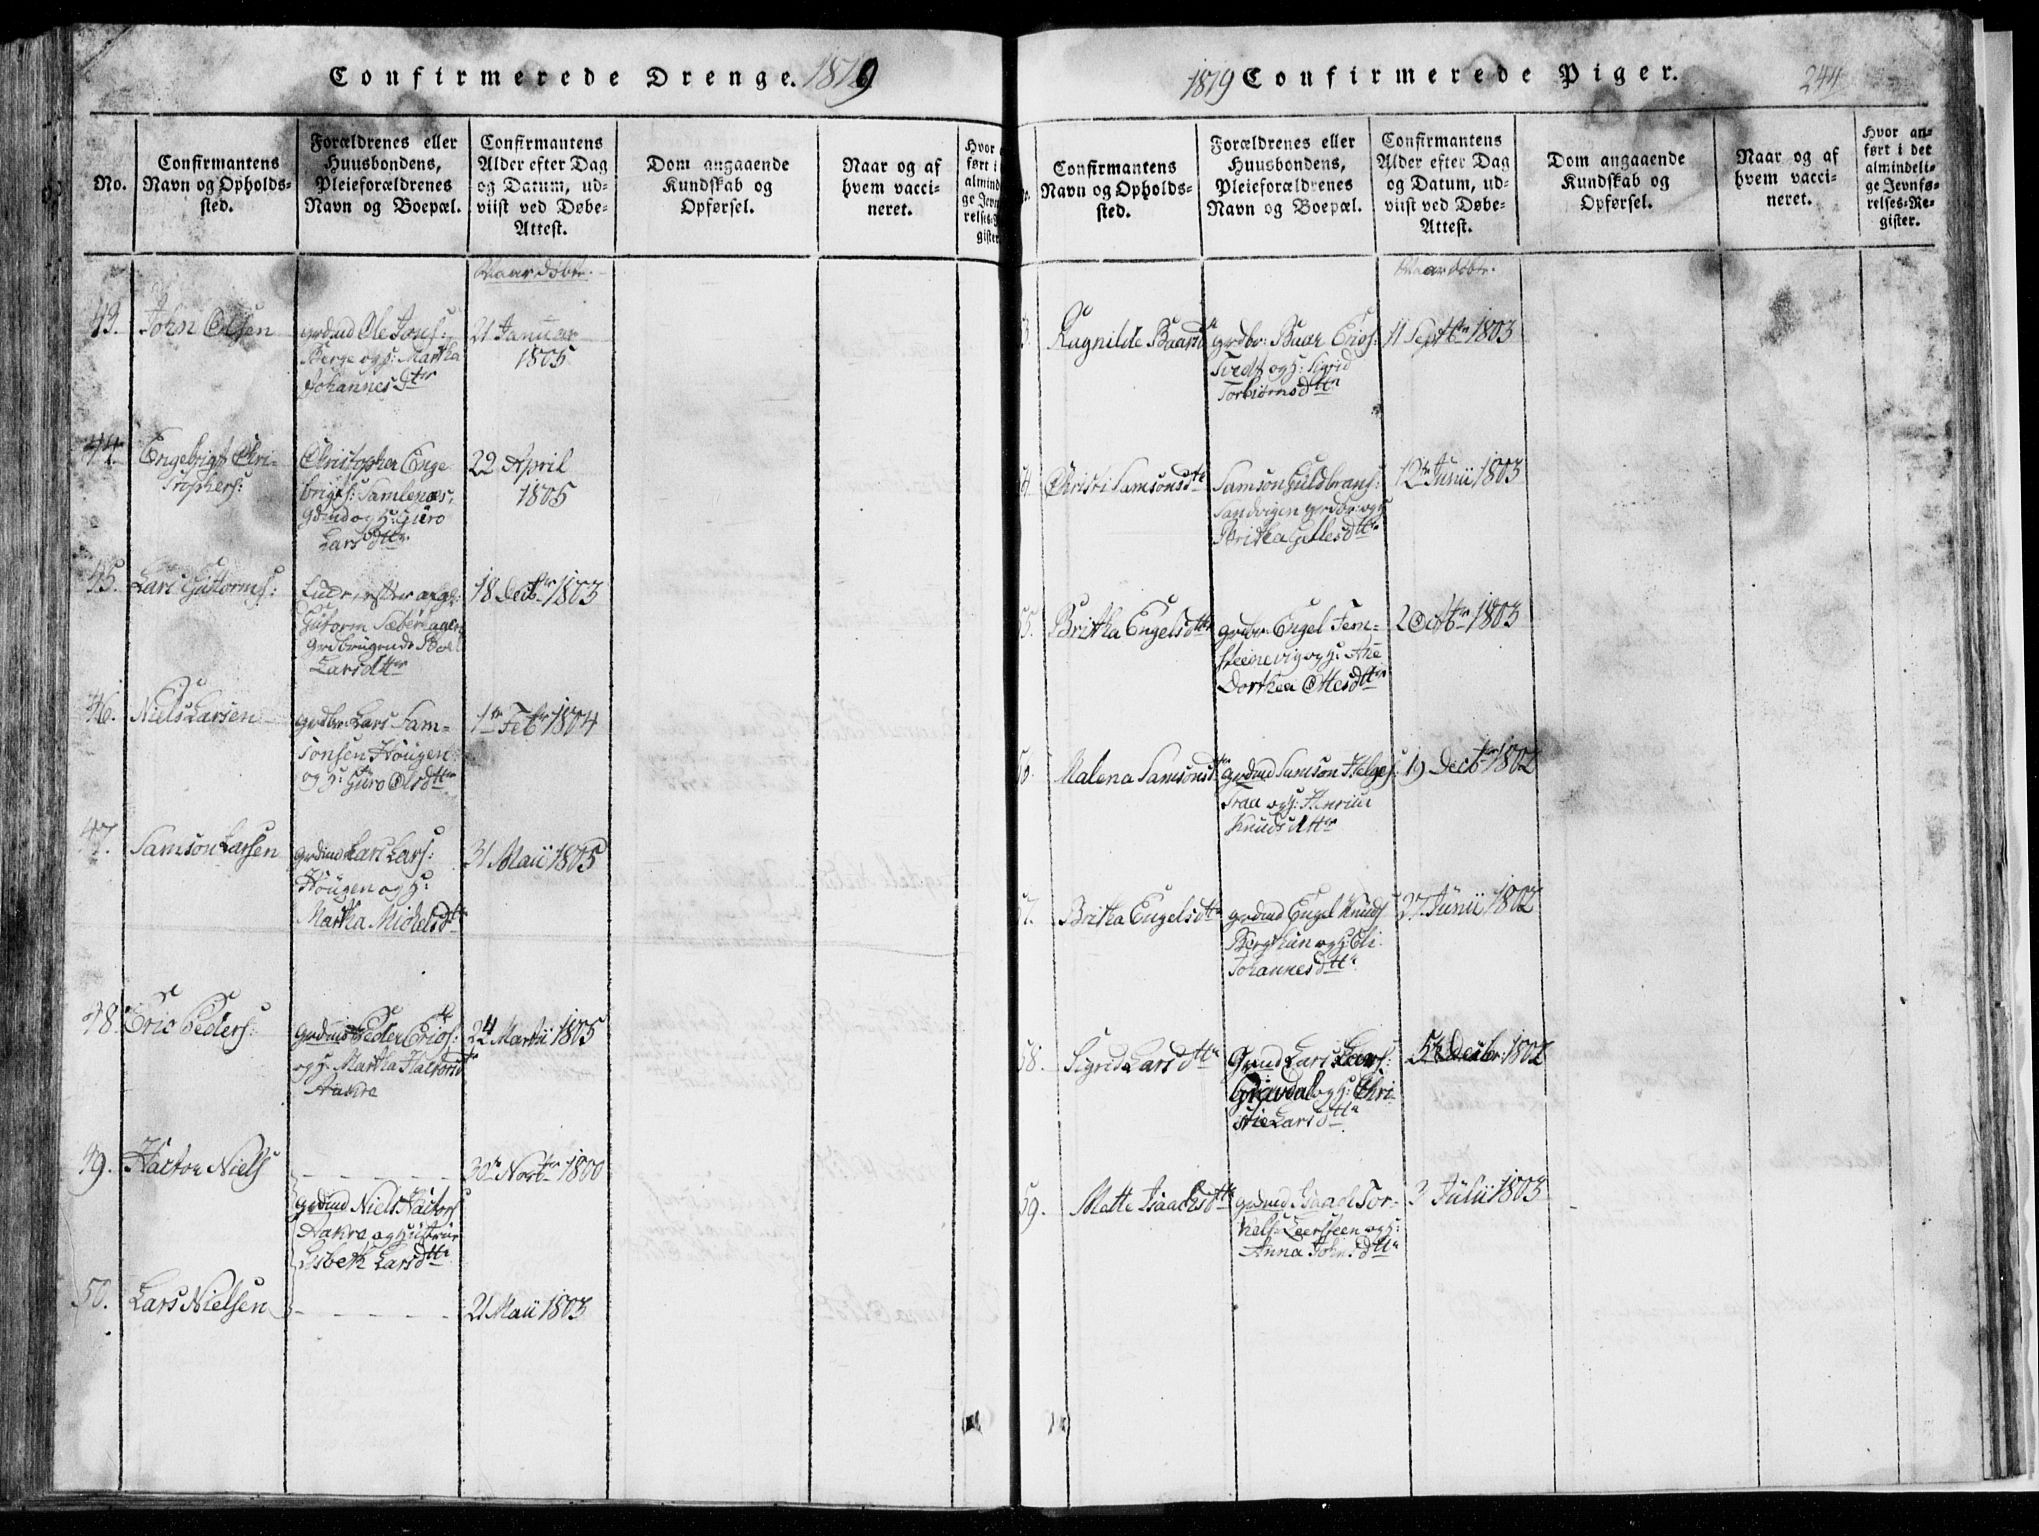 Confirmerede Drenge. 1819
No.
Confirmantens
Navn og Opholds-
sted.
Forældrenes eller
Huusbondens,
Pleieforældrenes
Navn og Boepæl.
Confirmantens
Alder efter Dag
og Datum, ud-
viist ved Døbe-
Attest.
Dom angaaende
Kundskab og
Opførsel.
Naar og af
hvem vacci-
neret.
Hvor
ført i
almind
ge Jevn
relses-
gister
Naar døbt.
43. John Olsen
grdmd Ole Jons:
Berge og H: Martha
Johannesdtr
21 Januar
1805
44. Engebrigt Chri-
stophers:
Christopher Enge
brigts: Samlenæs,
grdmd og H: Guro
Larsdttr
22 April
1805
45. Lars Guttorms:
Guttorm
Larsdttr
18 Decbr 1803
46. Niels Larsen
grdbr Lars Sam-
sonsen Hougen
og H: Guro Olsdttr
1te Febr 1804
47. Samson Larsen
grdmd Lars Lars:
Hougen og H:
Martha Michelsdtr
31 Maii 1805
48. Eric Peders:
grdmd Peder Erics:
og H: Martha
Aakre
24 Martii 1805
49. Hactor Niels
30te Novbr 1800
grdmd Niels Hactors
Aakre og Hustrue
Lisbeth Larsdttr
50. Lars Nielsen
21 Maii 1803
1819 Confirmerede Piger. 244
Confirmantens
Navn og Opholds-
sted.
Forældrenes eller
Huusbondens,
Pleieforældrenes
Navn og Boepæl.
Confirmantens
Alder efter Dag
og Datum, ud-
viist ved Døbe-
Attest.
Dom angaaende
Kundskab og
Opførsel.
Naar og af
hvem vacci-
neret.
Hvor an-
ført i det
almindeli-
ge Jevnfø-
relses-Re-
gister.
Naar døbt.
3. Ragnilde Baarsdr
grdbr: Baar Erics:
Tvedt og H: Sigrid
Torbiørnsdttr
11 Septbr 1803
4. Christi Samsonsdtr
Samson Guldbrands:
Sandvigen grdbr: og H
Britha Gittlesdttr
12te Junii 1803
55. Britha Engelsdttr
grdbr: Engel Jem-
steinevig og H: Ane
Dorthea Ottesdttr
2 Octbr 1803
56. Malena Samsonsdtr
grdmd Samson Helges:
Traa og H:
Knudsdttr
19 Decbr 1802
57. Britha Engelsdttr
grdmd Engel Knuds
og H: Eli
Johannesdttr
27 Junii 1802
58. Sigrid Larsdttr
Grmd Lars Lars:
Gravdal og H: Chri-
stie Larsdttr
5te Decbr: 1802
59. Mette Isaachsdttr
grdmd Isaach Tor-
kels: Leersteen og H:
Anna Johnsdttr
3 Julii 1803